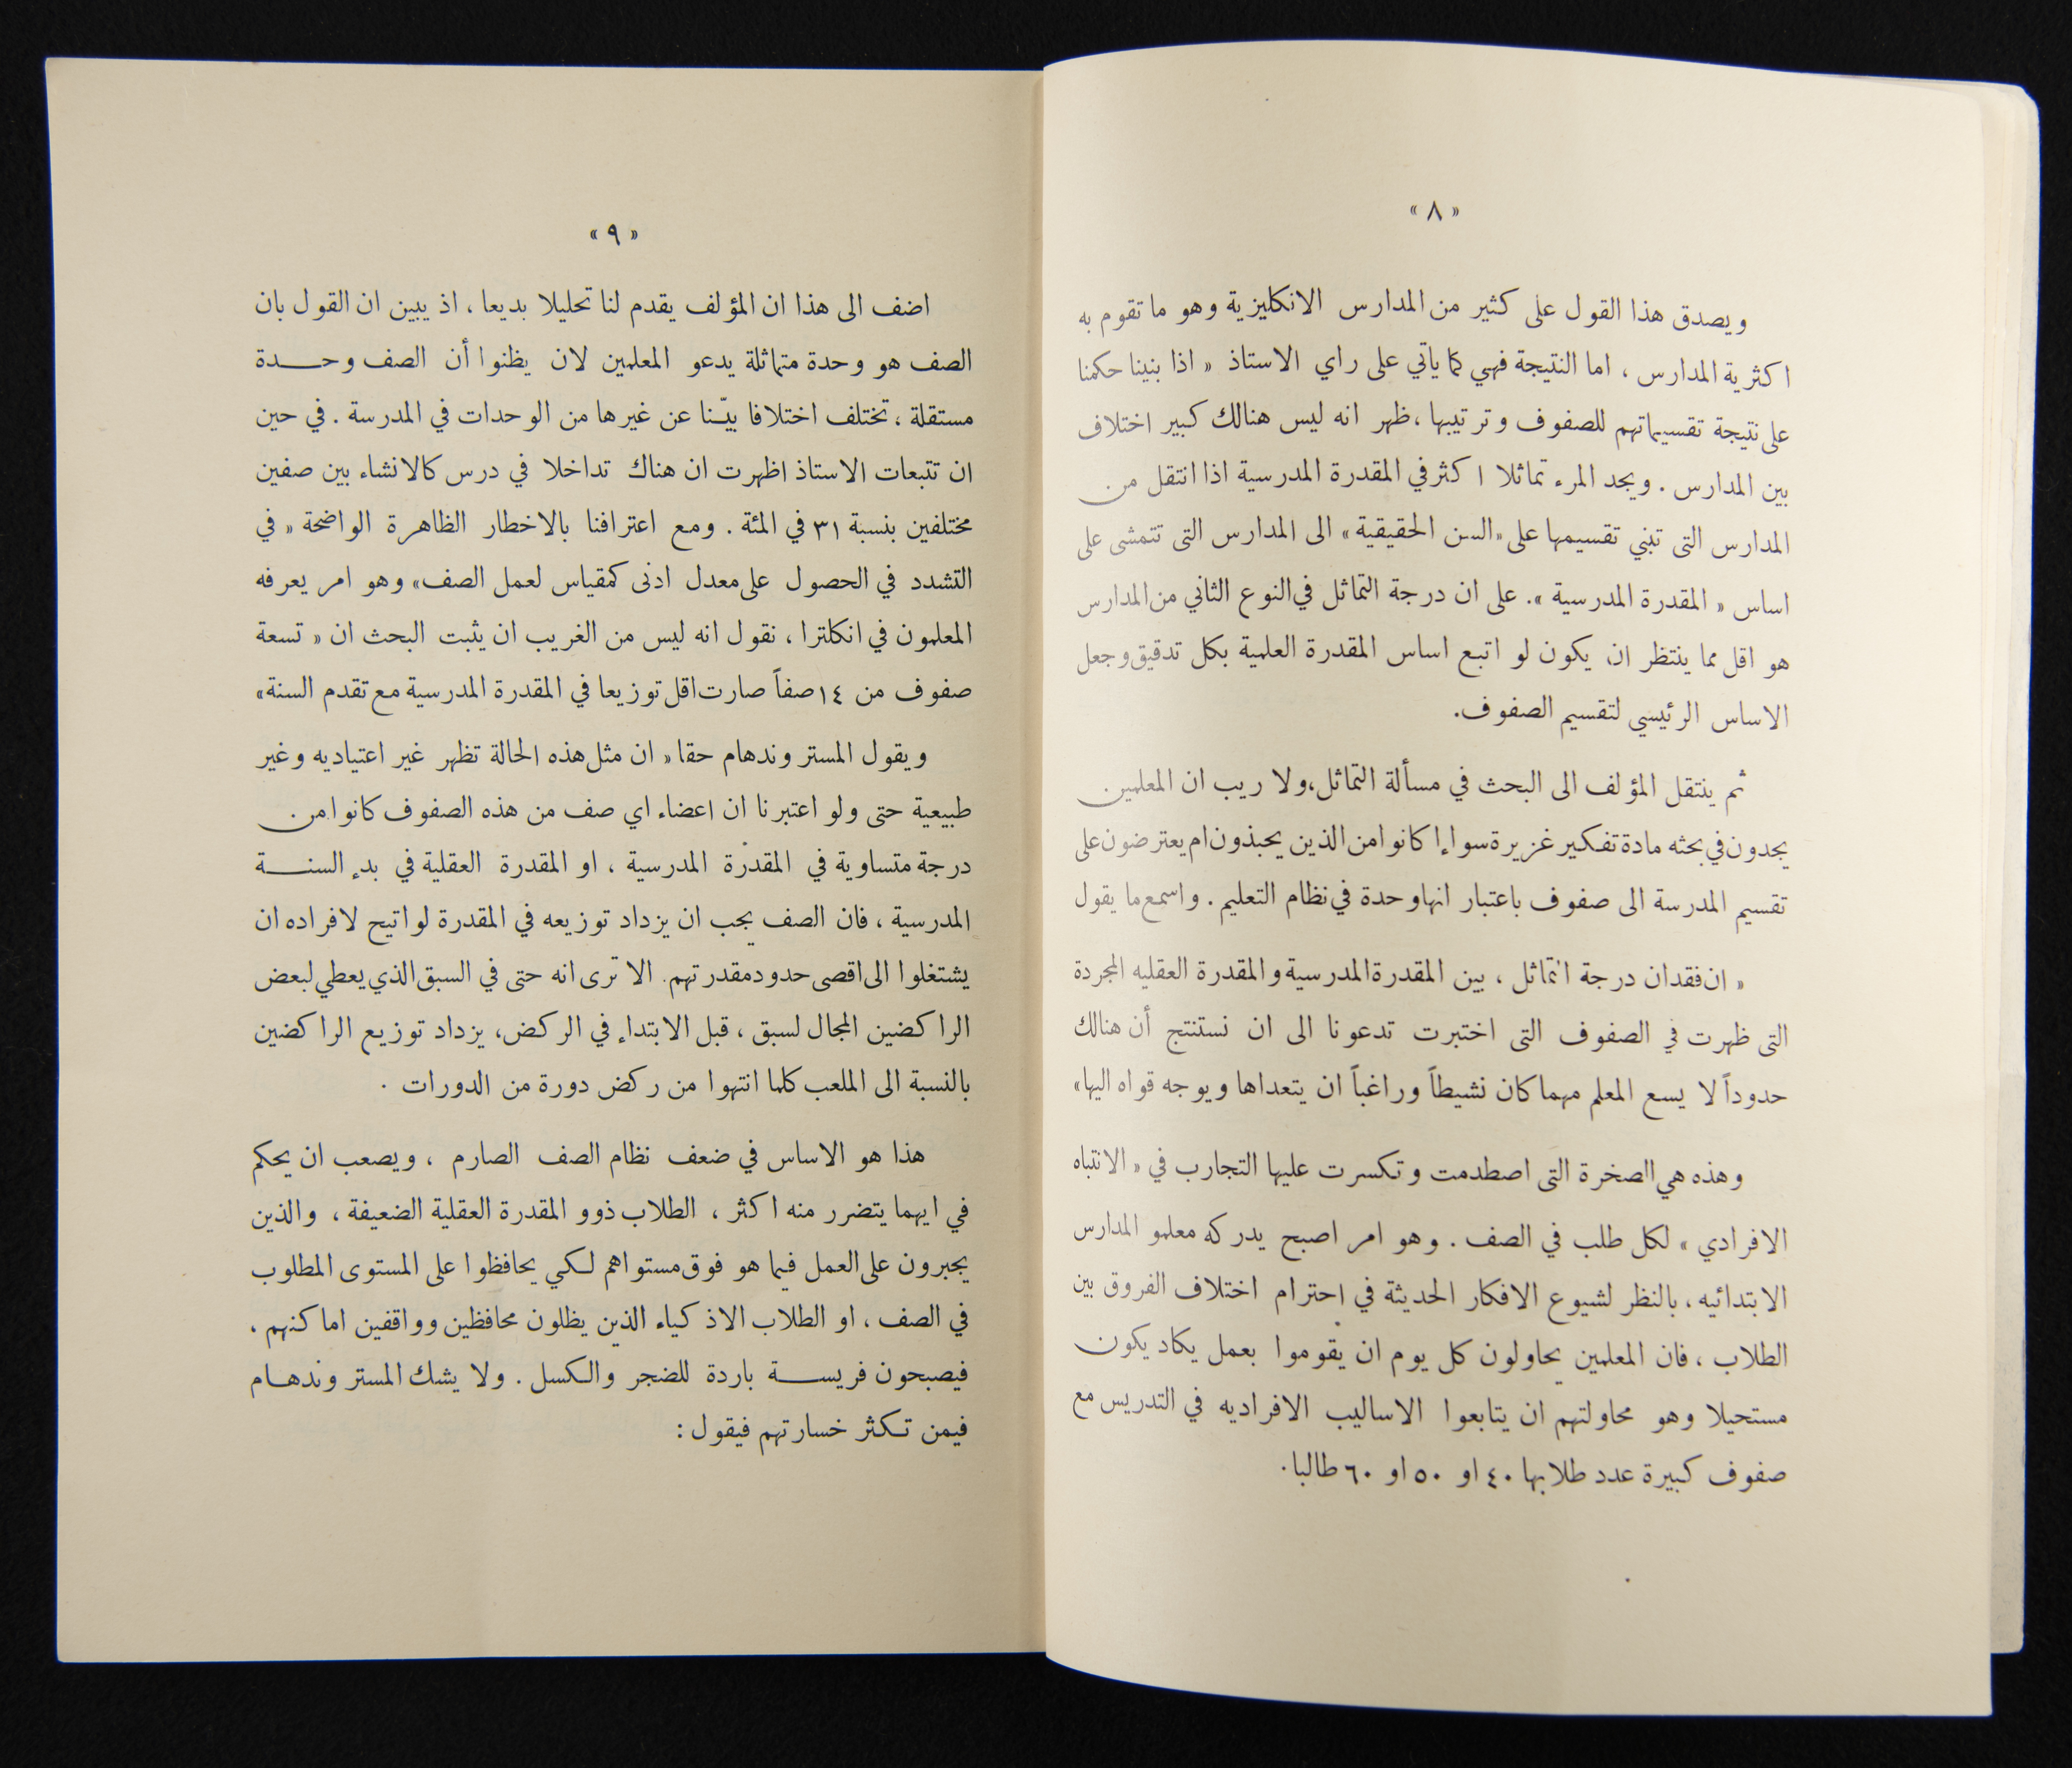 « ٨ »
ويصدق هذا القول على كثير من المدارس الانكليزية وهو ما تقوم به
اكثرية المدارس ، اما النتيجة فهي كما ياتي على راي الاستاذ « اذا بنينا حكمنا
على نتيجة تقسيماتهم للصفوف وترتيبها ، ظهر انه ليس هنالك كبير اختلاف
بين المدارس . ويجد المرء تماثلا اكثر في المقدرة المدرسية اذا انتقل من
المدارس التى تبني تقسيمها على «السن الحقيقية» الى المدارس التى تتمشى على
اساس « المقدرة المدرسية ». على ان درجة التماثل في النوع الثاني من المدارس
هو اقل مما ينتظر ان يكون لو اتبع اساس المقدرة العلمية بكل تدقيق وجعل
الاساس الرئيسي لتقسيم الصفوف.
ثم ينتقل المؤلف الى البحث في مسألة التماثل، ولا ريب ان المعلمين
يجدون في بحثه مادة تفكير غزيرة سواءا كانوا من الذين يحبذون ام يعترضون على
تقسيم المدرسة الى صفوف باعتبار انها وحدة في نظام التعليم . واسمع ما يقول
« ان فقدان درجة التماثل ، بين المقدرة المدرسية والمقدرة العقليه المجردة
التى ظهرت في الصفوف التى اختبرت تدعونا الى ان نستنتج أن هنالك
حدوداً لا يسع المعلم مهما كان نشيطاً وراغباً ان يتعداها ويوجه قواه اليها»
وهذه هي الصخرة التى اصطدمت وتكسرت عليها التجارب في « الانتباه
الافرادي » لكل طلب في الصف . وهو امر اصبح يدركه معلمو المدارس
الابتدائيه ، بالنظر لشيوع الافكار الحديثة في احترام اختلاف الفروق بين
الطلاب ، فان المعلمين يحاولون كل يوم ان يقوموا بعمل يكاد يكون
مستحيلا وهو محاولتهم ان يتابعوا الاساليب الافراديه في التدريس مع
صفوف كبيرة عدد طلابها ٤٠ او ٥٠ او ٦٠ طالبا .
« ٩ »
اضف الى هذا ان المؤلف يقدم لنا تحليلا بديعا ، اذ يبين ان القول بان
الصف هو وحدة متماثلة يدعو المعلمين لان يظنوا أن الصف وحـــدة
مستقلة ، تختلف اختلافا بيّنا عن غيرها من الوحدات في المدرسة . في حين
ان تتبعات الاستاذ اظهرت ان هناك تداخلا في درس كالانشاء بين صفين
مختلفين بنسبة ٣١ في المئة . ومع اعترافنا بالاخطار الظاهرة الواضحة « في
التشدد في الحصول على معدل ادنى كمقياس لعمل الصف» وهو امر يعرفه
المعلمون في انكلترا ، نقول انه ليس من الغريب ان يثبت البحث ان « تسعة
صفوف من ١٤ صفاً صارت اقل توزيعا في المقدرة المدرسية مع تقدم السنة»
ويقول المستر وندهام حقا « ان مثل هذه الحالة تظهر غير اعتياديه وغير
طبيعية حتى ولو اعتبرنا ان اعضاء اي صف من هذه الصفوف كانوا من
درجة متساوية في المقدرة المدرسية ، او المقدرة العقلية في بدء السنـــة
المدرسية ، فان الصف يجب ان يزداد توزيعه في المقدرة لو اتيح لافراده ان
يشتغلوا الى اقصى حدود مقدرتهم. الا ترى انه حتى في السبق الذي يعطي لبعض
الراكضين المجال لسبق ، قبل الابتداء في الركض، يزداد توزيع الراكضين
بالنسبة الى الملعب كلما انتهوا من ركض دورة من الدورات .
هذا هو الاساس في ضعف نظام الصف الصارم ، ويصعب ان يحكم
في ايهما يتضرر منه اكثر ، الطلاب ذوو المقدرة العقلية الضعيفة ، والذين
يجبرون على العمل فيما هو فوق مستواهم لكي يحافظوا على المستوى المطلوب
في الصف ، او الطلاب الاذكياء الذين يظلون محافظين وواقفين اماكنهم ،
فيصبحون فريســـة باردة للضجر والكسل . ولا يشك المستر وندهـام
فيمن تـكثر خسارتهم فيقول :